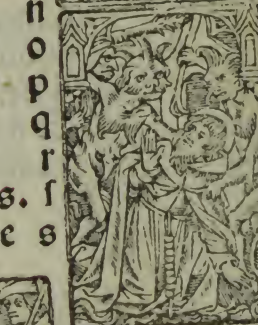 n
o
p
q
r
s. ſ
e s